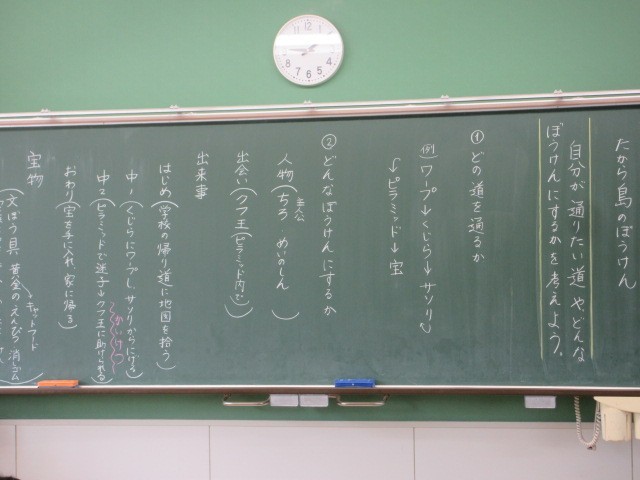 たから島のぼうけん
自分が通りたい道や、どんな
ぼうけんにするかを考えよう。
① どの道を通るか
(例) ワープ→くじら→サソリ
→ピラミッド→宝
② どんなぼうけんにするか
主人公
人物(ちろ・めいのしん )
出会い(クフ王(ピラミッド内で))
出来事
はじめ(学校の帰り道に地図を拾う)
中1(くじらにワープし、サソリからにげる)
中2(ピラミッドで迷子→クフ王に助けられる)
かいけつ
おわり(宝を手に入れ、家に帰る)
宝物
(文ぼう具 黄金のえんぴつ 消しゴム
キャットフード
8 7 6 5 4